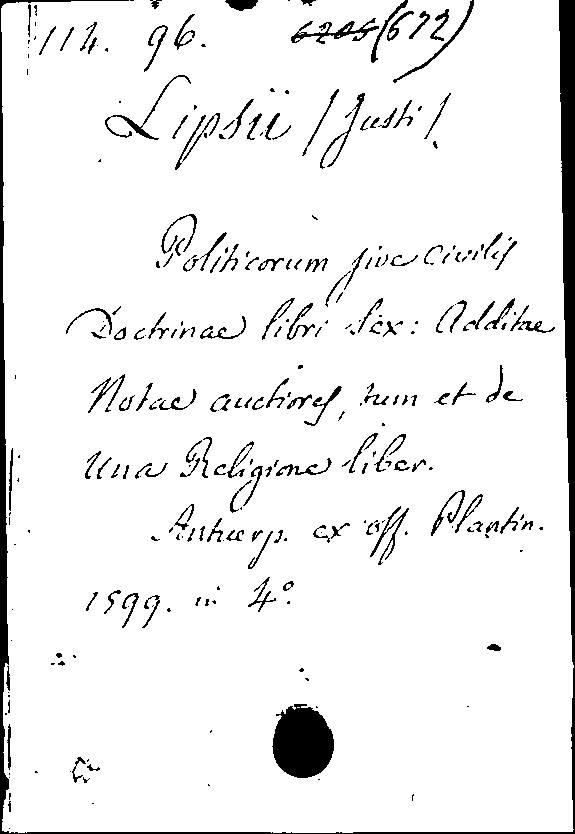 114. 96. 6205 (672)
Lipsii / Justi /.
Politicorum sive civilis
Doctrinae libri Sex: Additae
Notae auctiores, tum et de
Una Religione liber.
Antwerp. ex off. Plantin.
1599. in 4º.